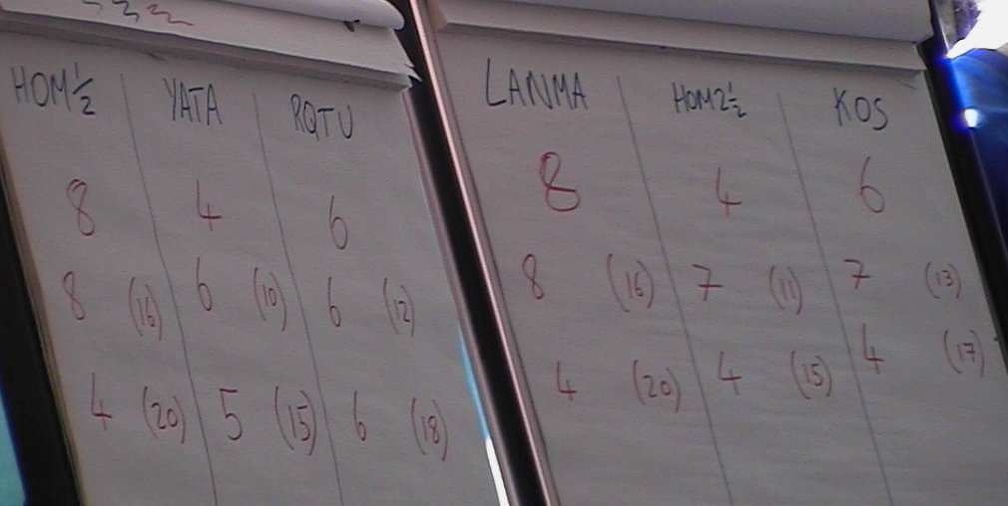 HOM½ YATA RQTU
8 4 6
8 (16) 6 (10) 6 (12)
4 (20) 5 (15) 6 (18)
LANMA HOM2½ KOS
8 4 6
8 (16) 7 (11) 7 (13)
4 (20) 4 (15) 4 (17)